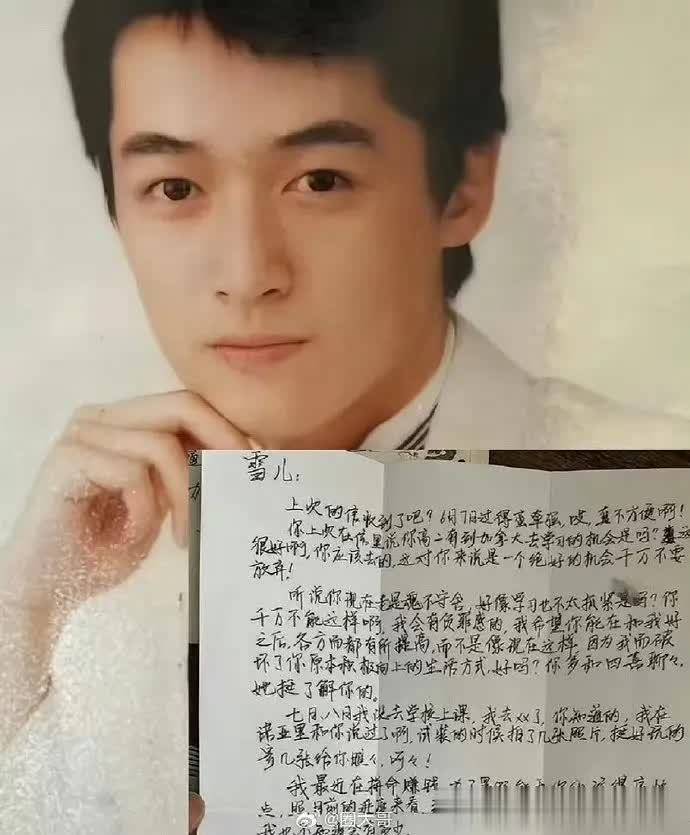 雪儿:
上次的信收到了吧?6月7日过得蛮牵强,哎,真不方便啊!
你上次在信里说你高二有到加拿大去学习的机会是吗?
很好啊,你应该去的,这对你来说是一个绝好的机会千万不要
放弃!
听说你现在老是魂不守舍,好像学习也不太抓紧是吗?你
千万不能这样啊,我会有负罪感的,我希望你能在和我好
之后,各方面都有所提高,而不是像现在这样,因为我而破
坏了你原本积极向上的生活方式,好吗?你多和四喜聊々,
她挺了解你的。
七日、八日我没去学校上课,我去xx了,你知道的,我在
诺亚里和你说过了啊,试装的时候拍了几张照片,挺好玩的
寄几张给你瞧々,呵々!
我最近在拼命赚钱
点,照目前的进度来看,
@圈大哥